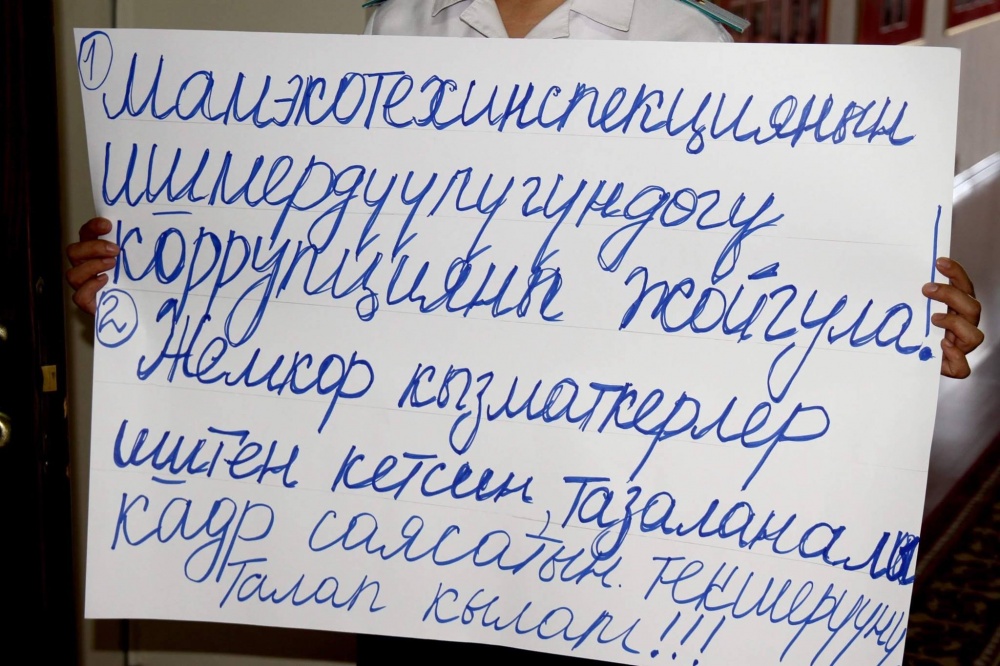 ① Мамэкотехинспекциянын
ишмердуулугундогу
коррупцияны жойгула!
② Жемкор кызматкерлер
иштен кетсин, тазаланалы
кадр саясатын текшерууну
талап кылам!!!